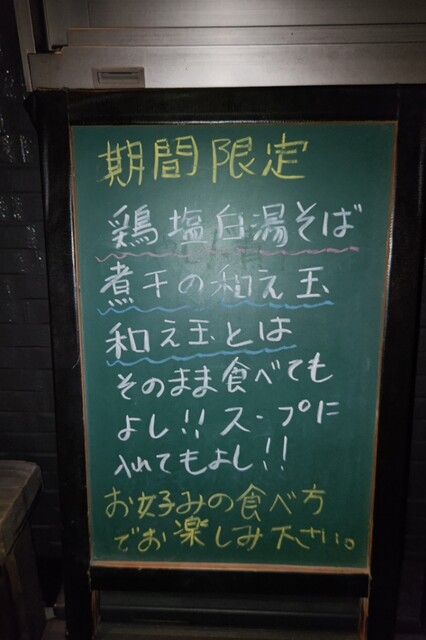 期間限定
鶏塩白湯そば
煮干の和え玉
和え玉とは
そのまま食べても
よし!!スープに
入れてもよし!!
お好みの食べ方
でお楽しみ下さい。